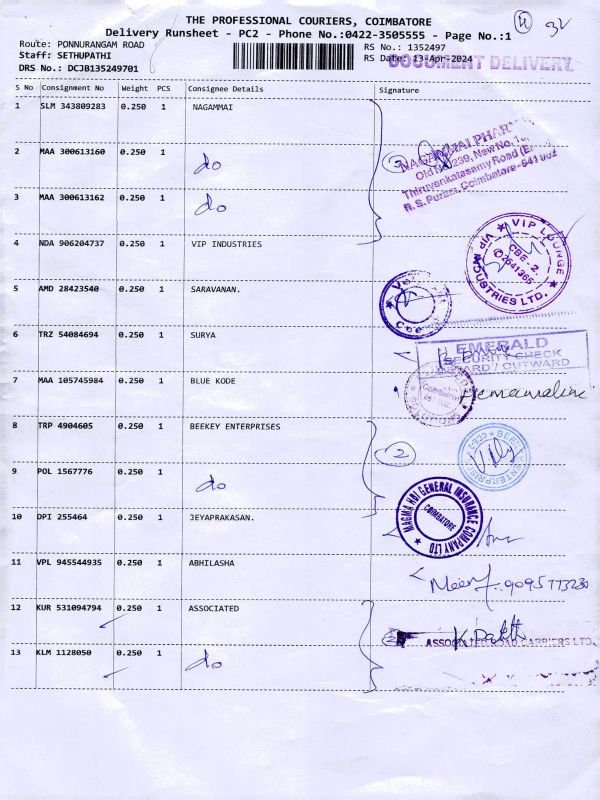 THE PROFESSIONAL COURIERS, COIMBATORE
Delivery Runsheet - PC2 - Phone No.:0422-3505555 - Page No.:1
4 32
Route: PONNURANGAM ROAD
RS No.: 1352497
Staff: SETHUPATHI
RS Date: 13-Apr-2024
DOCUMENT DELIVERY
DRS No.: DCJB135249701
S No Consignment No Weight PCS Consignee Details Signature
1 SLM 343809283 0.250 1 NAGAMMAI
2 MAA 300613160 0.250 1 do
3 MAA 300613162 0.250 1 do
3
NAGAMMAI PHAR
Old No.239, New No.
Thiruvenkatasamy Road
R.S. Puram, Coimbatore-641 002
4 NDA 906204737 0.250 1 VIP INDUSTRIES
VIP LOUNGE
CBE - 2.
2541365
VIP INDUSTRIES LTD.
5 AMD 28423540 0.250 1 SARAVANAN.
6 TRZ 54084694 0.250 1 SURYA
EMERALD
SECURITY CHECK
INWARD / OUTWARD
7 MAA 105745984 0.250 1 BLUE KODE
Coimbatore
8 TRP 4904605 0.250 1 BEEKEY ENTERPRISES
2
9 POL 1567776 0.250 1 do
10 DPI 255464 0.250 1 JEYAPRAKASAN.
MAGMA HDI GENERAL INSURANCE COMPANY LTD
COIMBATORE
11 VPL 945544935 0.250 1 ABHILASHA
9095773230
12 KUR 531094794 0.250 1 ASSOCIATED
ASSOCIATED ROAD CARRIERS LTD.
13 KLM 1128050 0.250 1 do